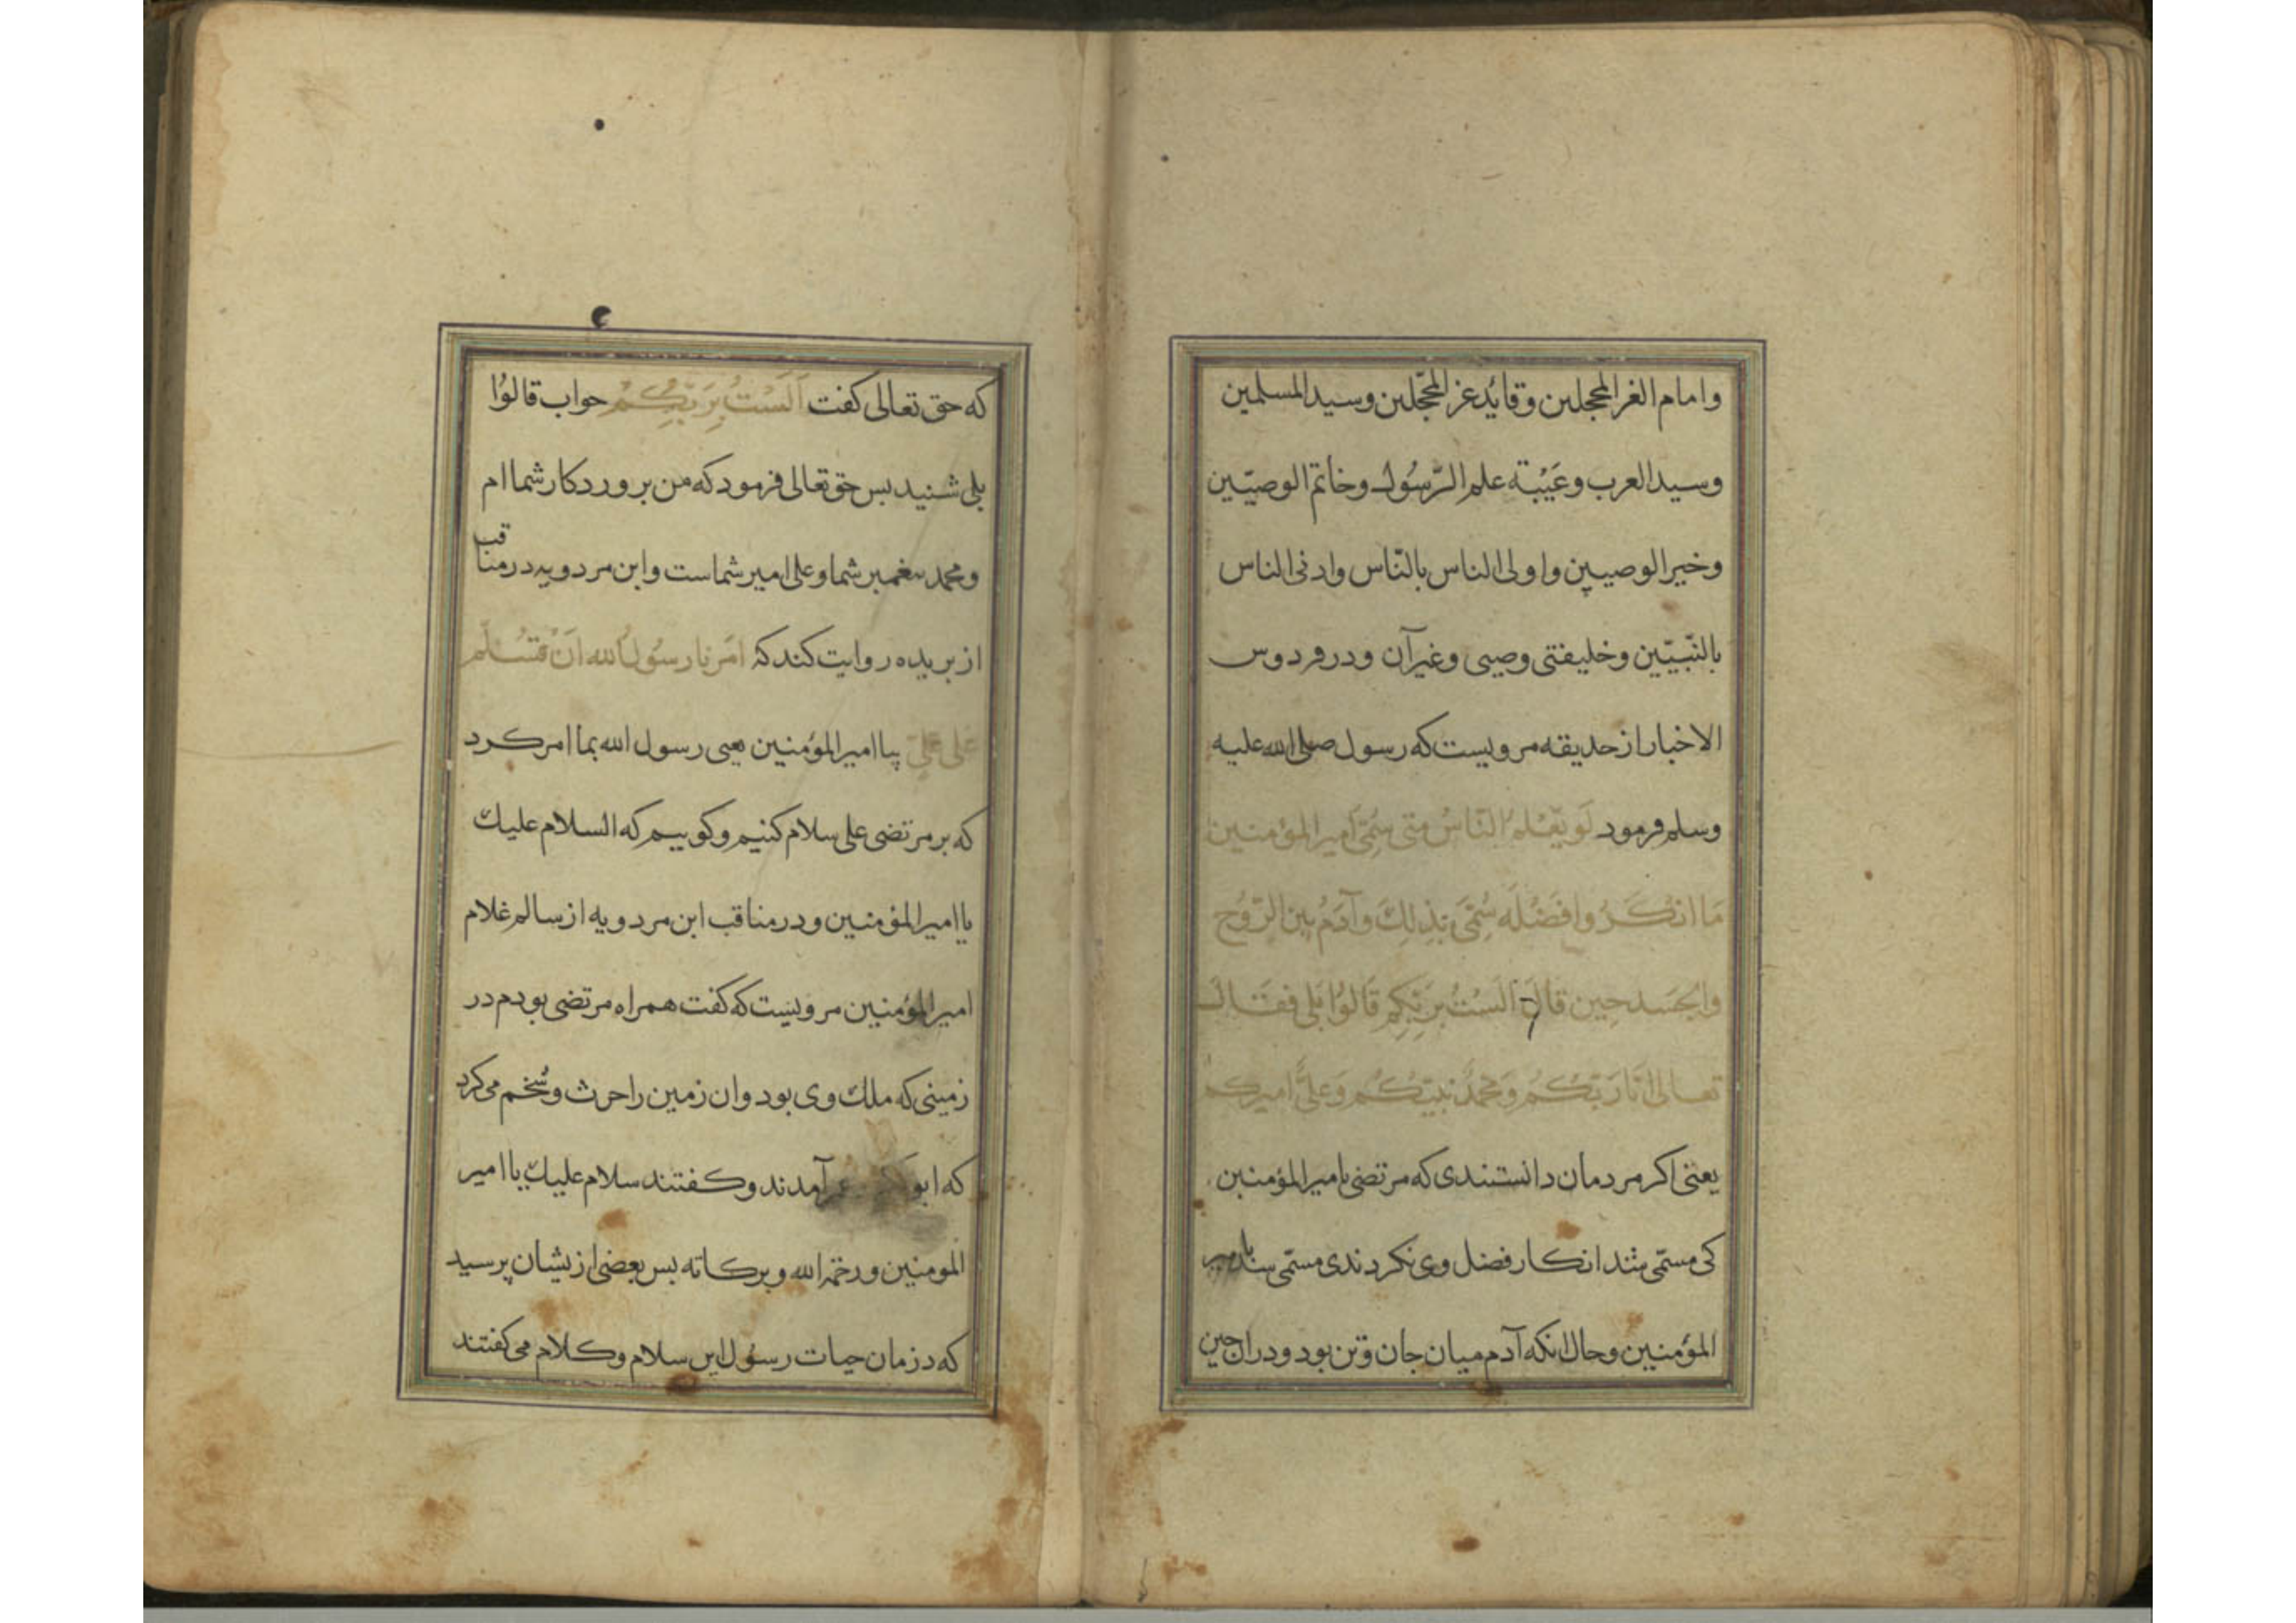 وامام الغر المحجلین وقائد غر المحجّلین وسید المسلمین
وسید العرب وعَیْبَة علم الرّسُول وخاتم الوصیّین
وخیر الوصیین واولی الناس بالنّاس وادنی الناس
بالنّبیّین وخلیفتی وصیی وغیر آن ودر فردوس
الاخبار از حدیقه مرویست که رسول صلی الله علیه
وسلم فرمود لَو یَعْلم النّاسُ متی سُمِّیَ امیر المؤمنین
مَا انکَرُوا فَضْلَه سُمِّیَ بذلِكَ وآدَمُ بین الرّوُح
والجَسد حِین قالَ اَلَسْتُ بِرَبِّکِم قَالُوُا بَلی فقَال
تعالی اَنَا رَبّکُم وَمحَمّدٌ نبیّکُم وَعلیٌّ امیرکم
یعنی اکر مردمان دانستندی که مرتضی بامیر المؤمنین
کی مسمّی شد انکار فضل وی نکردندی مسمّی شد بامیر
المؤمنین وحال انکه آدم میان جان وتن بود ودران حین
که حق تعالی کفت اَلَسْتُ بِرَبِّکُمْ جواب قالوُا
بلی شنید بس حق تعالی فرمود که من بروردکار شما ام
ومحمد بیغمبر شما وعلی امیر شماست وابن مردویه در مناقب
از بریده روایت کند که امَرنا رسُولُ الله اَنْ نُسَلّم
عَلی عَلِیّ بیا امیر المؤمنین یعنی رسول الله بما امر کرد
که بر مرتضی علی سلام کنیم وکوییم که السلام علیك
یا امیر المؤمنین ودر مناقب ابن مردویه از سالم غلام
امیر المؤمنین مرویست که کفت همراه مرتضی بودم در
زمینی که ملك وی بود وان زمین را حرث وشخم می کرد
که ابو عمر آمدند وکفتند سلام علیك یا امیر
المومنین ورحمة الله وبرکاته بس بعضی ازیشان پرسید
که در زمان حیات رسُول این سلام وکلام می کفتند